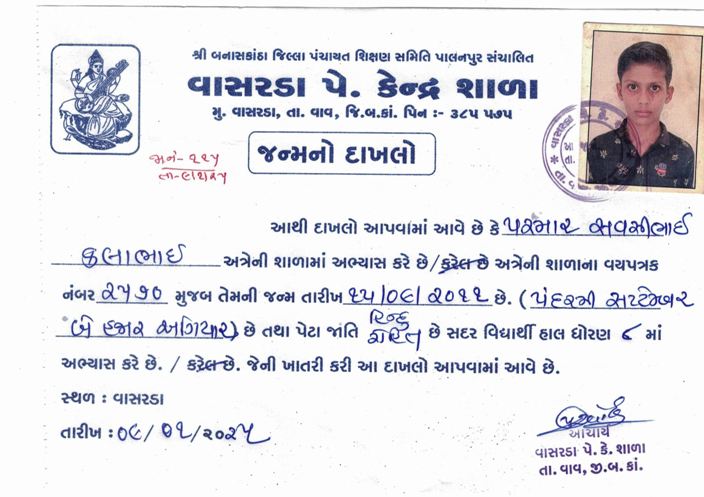 શ્રી બનાસકાંઠા જિલ્લા પંચાયત શિક્ષણ સમિતિ પાલનપુર સંચાલિત
વાસરડા પે. કેન્દ્ર શાળા
મુ. વાસરડા, તા. વાવ, જિ.બ.કાં. પિન :- ૩૮૫ ૫૭૫
જન્મનો દાખલો
આથી દાખલો આપવામાં આવે છે કે પરમાર
કલાભાઈ અત્રેની શાળામાં અભ્યાસ કરે છે/કરેલ છે અત્રેની શાળાના વયપત્રક
નંબર ૨૫૭૦ મુજબ તેમની જન્મ તારીખ ૧૫/૦૯/૨૦૧૧ છે. (પંદરમી સપ્ટેમ્બર
બે હજાર અગિયાર) છે તથા પેટા જાતિ હિન્દુ છે સદર વિદ્યાર્થી હાલ ધોરણ ૮ માં
અભ્યાસ કરે છે. / કરેલ છે. જેની ખાતરી કરી આ દાખલો આપવામાં આવે છે.
સ્થળ : વાસરડા
તારીખ : ૦૯/૦૧/૨૦૨૫
આચાર્ય
વાસરડા પે. કે. શાળા
તા. વાવ, જી.બ. કાં.